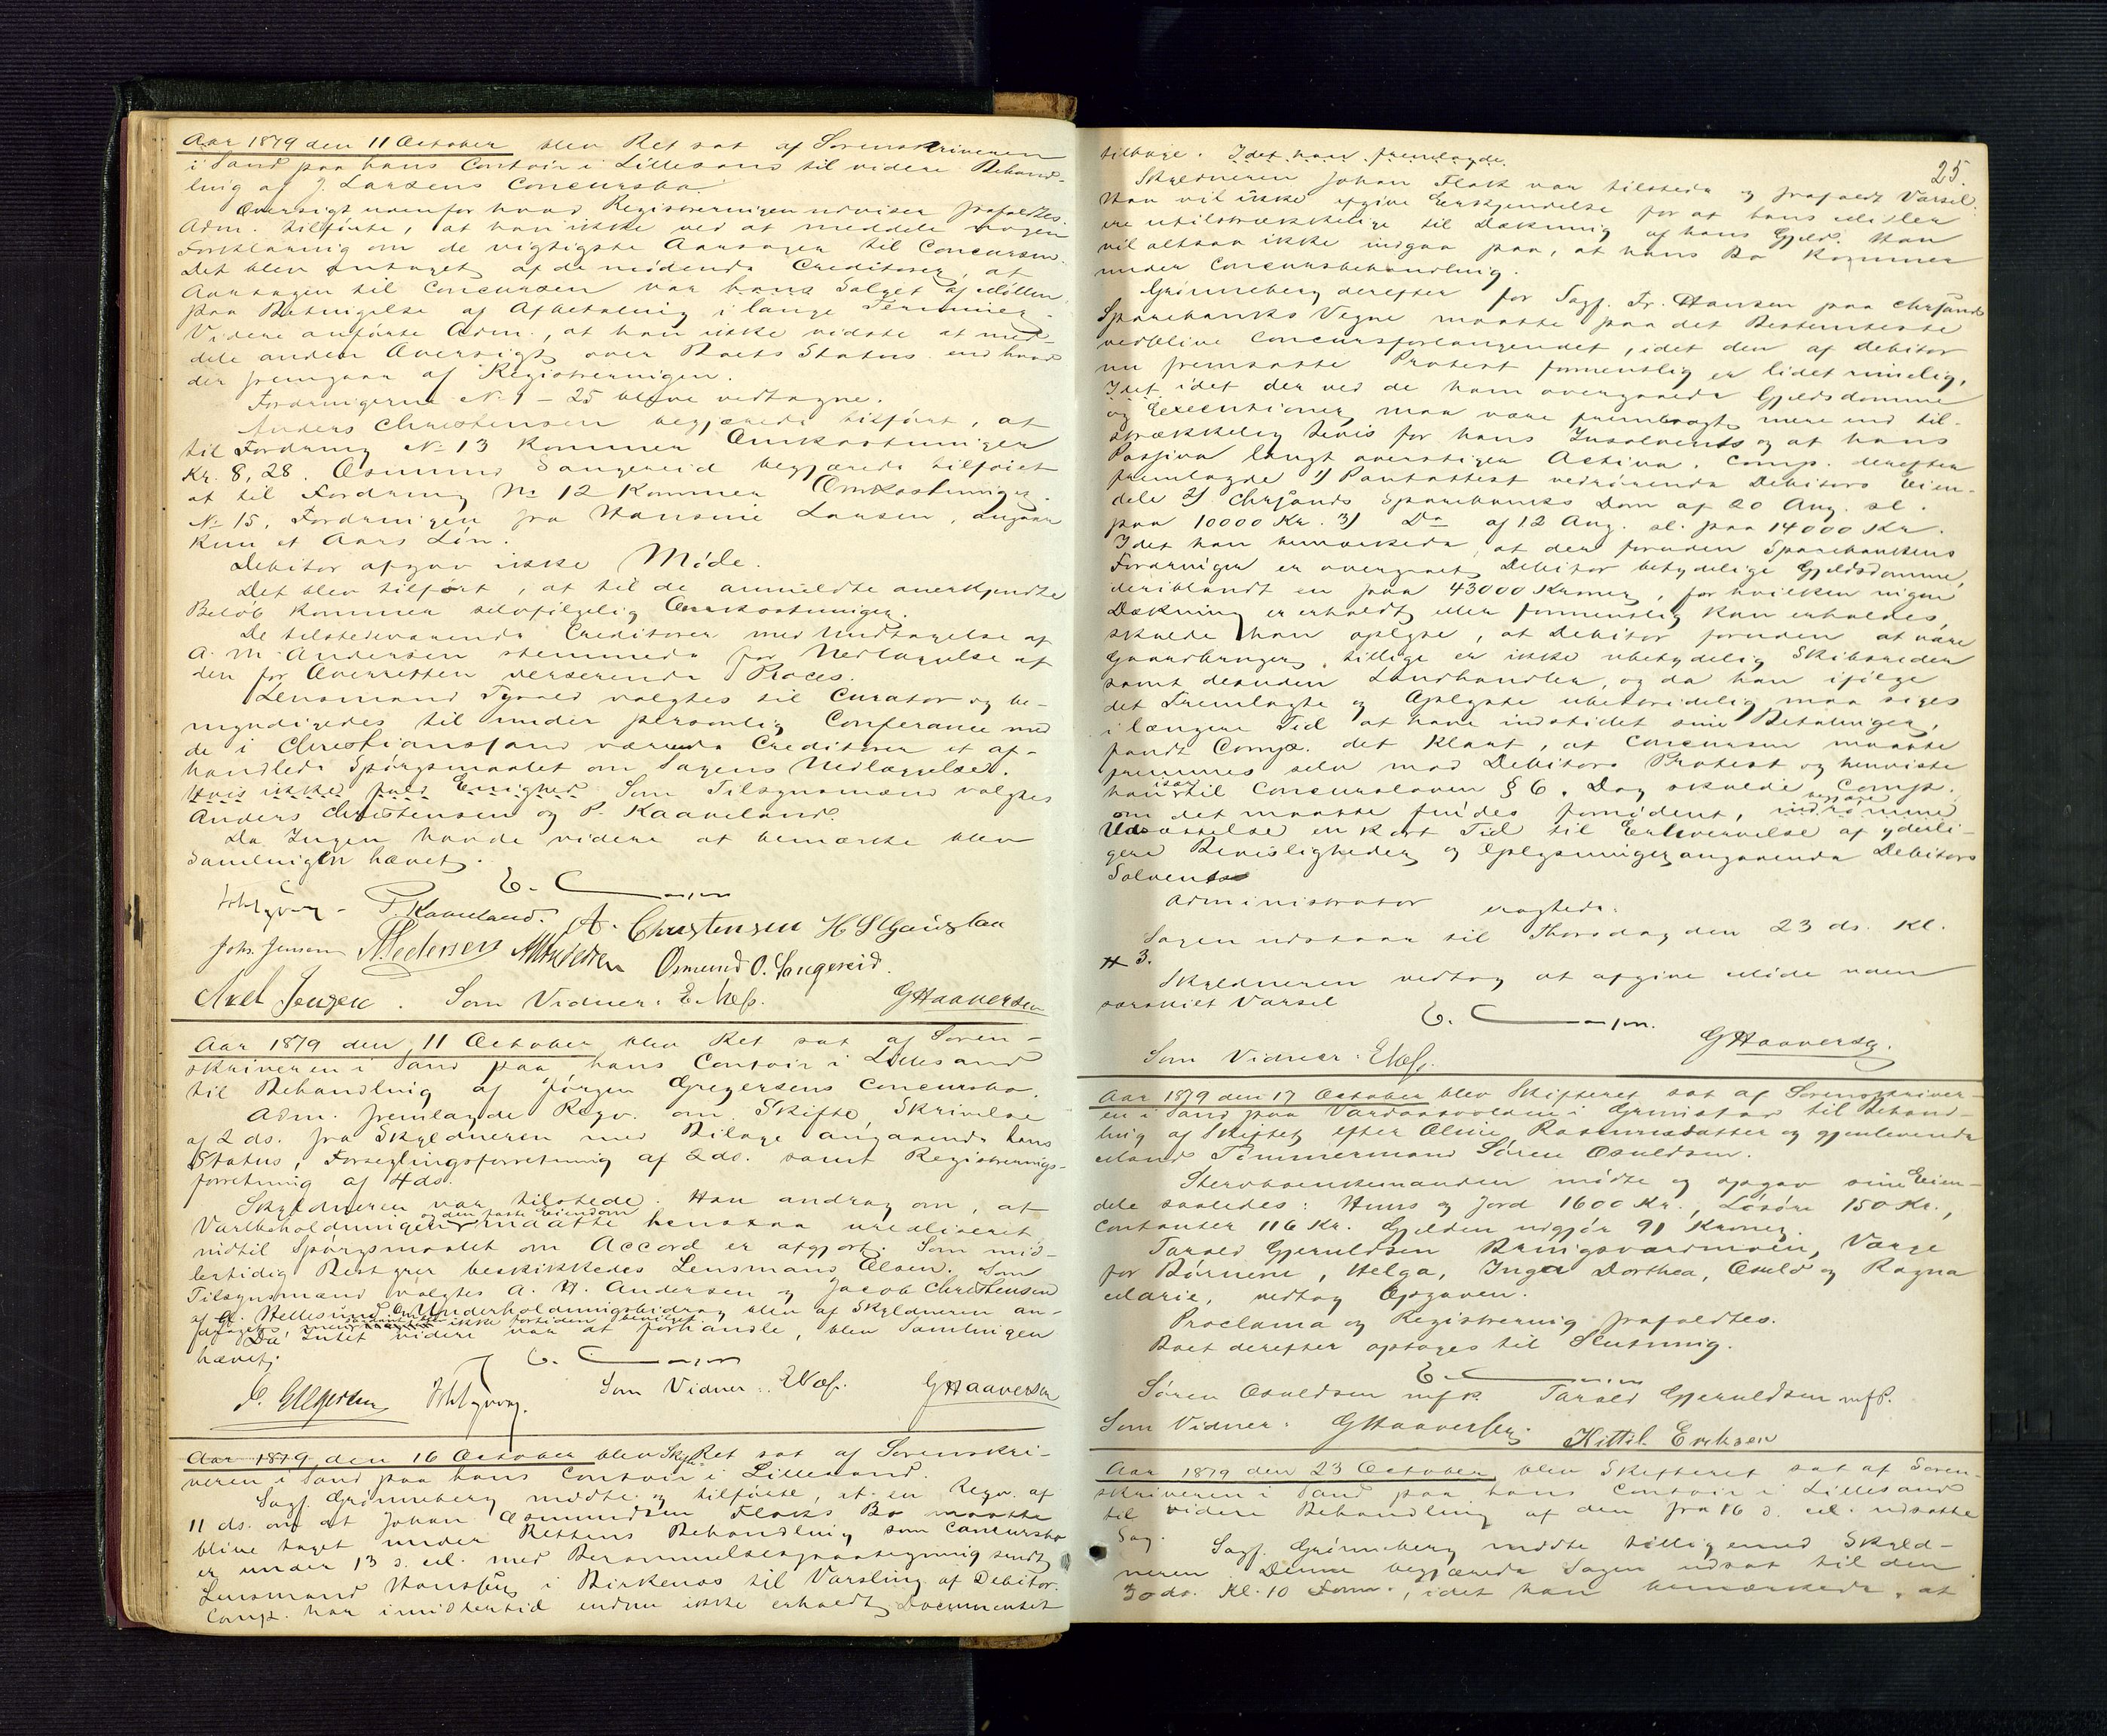 Aar 1879 den 11 October blev Ret sat af Sorenskriveren
i Sand paa hans Contoir i Lillesand til videre Behand-
ling af J. Larsens Concursbo.
Oversigt udenfor hvad Registreringen udviser frafaldtes.
Adm. tilførte, at han ikke ved at meddele nogen
Forklaring om de vigtigste Aarsager til Concursen.
Det blev antaget af de mødende Creditorer, at
Aarsagen til Concursen var hans Salget af Møllen
paa Betingelse af Afbetaling i lange Terminer.
Videre anførte Adm., at han ikke vidste at med-
dele anden Oversigt over Boets Status end hvad
der fremgaar af Registreringen.
Fordringerne No 1 - 25 bleve vedtagne.
Anders Christensen begjærede tilført, at
til Fordring No 13 kommer Omkostninger
Kr. 8,28. Osmund Sangereid begjærede tilføiet
at til Fordring No 12 kommer Omkostninger.
No 15, Fordringen fra Hansine Larsen, angaar
kun et Aars Løn.
Debitor afgav ikke Møde.
Det blev tilført, at til de anmeldte anerkjendte
Beløb kommer selvfølgelig Omkostninger
De tilstedeværende Creditorer med Undtagelse af
A. M. Andersen stemmede for Nedlæggelse af
den for Overretten verserende Proces.
Lensmand Tgvald valgtes til Curator og be-
myndigedes til under personlig Conferance med
de i Christianssand værende Creditorer et af-
handlede Spørgsmaalet om Sagens Nedlæggelse.
Hvis ikke fuld Enighed Som Tilsynsmænd valgtes
Anders Christensen og P. Kaaveland.
Da Ingen havde videre at bemærke blev
Samlingen hævet.
P. Kaaveland. A. Christensen
Johs. Jensen Osmund O. Sangereid.
Axel Jensen. Som Vidner: E. Næss. G Haaversen
Aar 1879 den 11 October blev Ret sat af Soren-
skriveren i Sand paa hans Contoir i Lillesand
til Behandling af Jørgen Gregersens Concursbo.
Adm. fremlagde Reqv. om Skifte, Skrivelse
af 2 ds. fra Skyldneren med Bilage angaaende hans
Status, Forseglingsforretning af 2 ds. samt Registrerings-
forretning af 4 ds.
Skyldneren var tilstede. Han androg om, at
Varebeholdningen og den faste Eiendom maatte henstaa urealiseret
indtil Spørgsmaalet om Accord er afgjort. Som mid-
lertidig Bestyrer beskikkedes Lensmand Olsen. Som
Tilsynsmænd valgtes A. H. Andersen og Jacob Christensen
af Hellesund. Om Underholdningsbidrag blev af Skyldneren an-
draget, men ikke fortiden bevilget.
Da Intet videre var at forhandle, blev Samlingen
hævet.
Som Vidner: E Næss. G Haaversen
Aar 1879 den 16 October blev Skifteret sat af Sorenskri-
veren i Sand paa hans Contoir i Lillesand.
Sagf. Grønneberg mødte og tilførte, at en Reqv. af
11 ds. om at Johan Osmundsen Flaks Bo maatte
blive taget under Rettens Behandling som Concursbo
er under 13 d. M. med Berammelsespaategning sendt
Lensmand i Birkenæs til Varsling af Debitor.
Comp. har imidlertid endnu ikke erholdt Documentet
25.
tilbage. Idet han fremlagde.
Skyldneren Johan Flak var tilstede og frafaldt Varsel.
Han vil ikke afgive Erkjendelse for at hans Midler
ere utilstrækkelige til Dækning af hans Gjeld. Han
vil altsaa ikke indgaa paa, at hans Bo kommer
under Concursbehandling.
Grønneberg derefter for Sagf. Fr. Hansen paa Chrsands
Sparebanks Vegne maatte paa det Bestemteste
vedblive Concursforlangendet, idet den af Debitor
nu fremsatte Protest formentlig er lidet rimelig,
Idet idet der ved de ham overgaaede Gjeldsdomme
og Executioner maa være frembragt mere end til-
strækkelig Bevis for hans Insolvents og at hans
Passiva langt overstiger Activa. Comp. derefter
fremlagde 1) Pantattest vedrørende Debitors Eien-
dele 2) Chrsands Sparebanks Dom af 20 Aug. sl.
paa 10000 Kr. 3) Do af 12 Aug. sl. paa 14000 Kr.
Idet han bemærkede, at der foruden Sparebankens
Fordringer er overgaaet Debitor betydelige Gjeldsdomme,
deriblandt en paa 43000 Kroner, for hvilken ingen
Dækning er erholdt eller formentlig kan erholdes,
skulde han oplyse, at Debitor foruden at være
Gaardbruger, tillige er ikke ubetydelig Skibsreder
samt desuden Landhandler, og da han ifølge
det Fremlagte og Oplyste ubestridelig maa siges
i længere Tid at have indstillet sine Betalinger,
fandt Comp. det klart, at Concursen maatte
fremmes selv mod Debitors Protest og henviste
han især til Concursloven § 6. Dog skulde Comp.
om det maatte findes fornødent, begjære indrømme
Udsættelse en kort Tid til Erhvervelse af yderli-
gere Bevisligheder og Oplysninger angaaende Debitors
Solvents
Administrator eragtede:
Sagen udstaar til Thorsdag den 23 ds. Kl.
3.
Skyldneren vedtog at afgive Møde uden
særskilt Varsel
G Haaversen.
Som Vidner: E Næss.
Aar 1879 den 17 October blev Skifteret sat af Sorenskriver-
en i Sand paa Vardaasvolden i Grimstad til Behand-
ling af Skiftet efter Oline Rasmusdatter og gjenlevende
Mand Tømmermand Søren Osuldsen.
Stervboenkemanden mødte og opgav sine Eien-
dele saaledes: Huus og Jord 1600 Kr., Løsøre 150 Kr.,
Contanter 116 Kr. Gjelden udgjør 91 Kroner.
Tarald Gjeruldsen Bringsværdmoen, Værge
for Børnene, Helga, Inga Dorthea, Osuld og Ragna
Marie, vedtog Opgaven.
Proclama og Registrering frafaldtes.
Boet derefter optages til Slutning.
Søren Osuldsen m f P. Tarald Gjeruldsen m f P.
Som Vidner: G Haaversen. Kittil Eriksen
Aar 1879 den 23 October blev Skifteret sat af Soren-
skriveren i Sand paa hans Contoir i Lillesand
til videre Behandling af den fra 16 d. M. udsatte
Sag.
Sagf. Grønneberg mødte tilligemed Skyld-
neren. Denne begjærede Sagen udsat til den
30 ds. Kl. 10 Form., idet han bemærkede, at